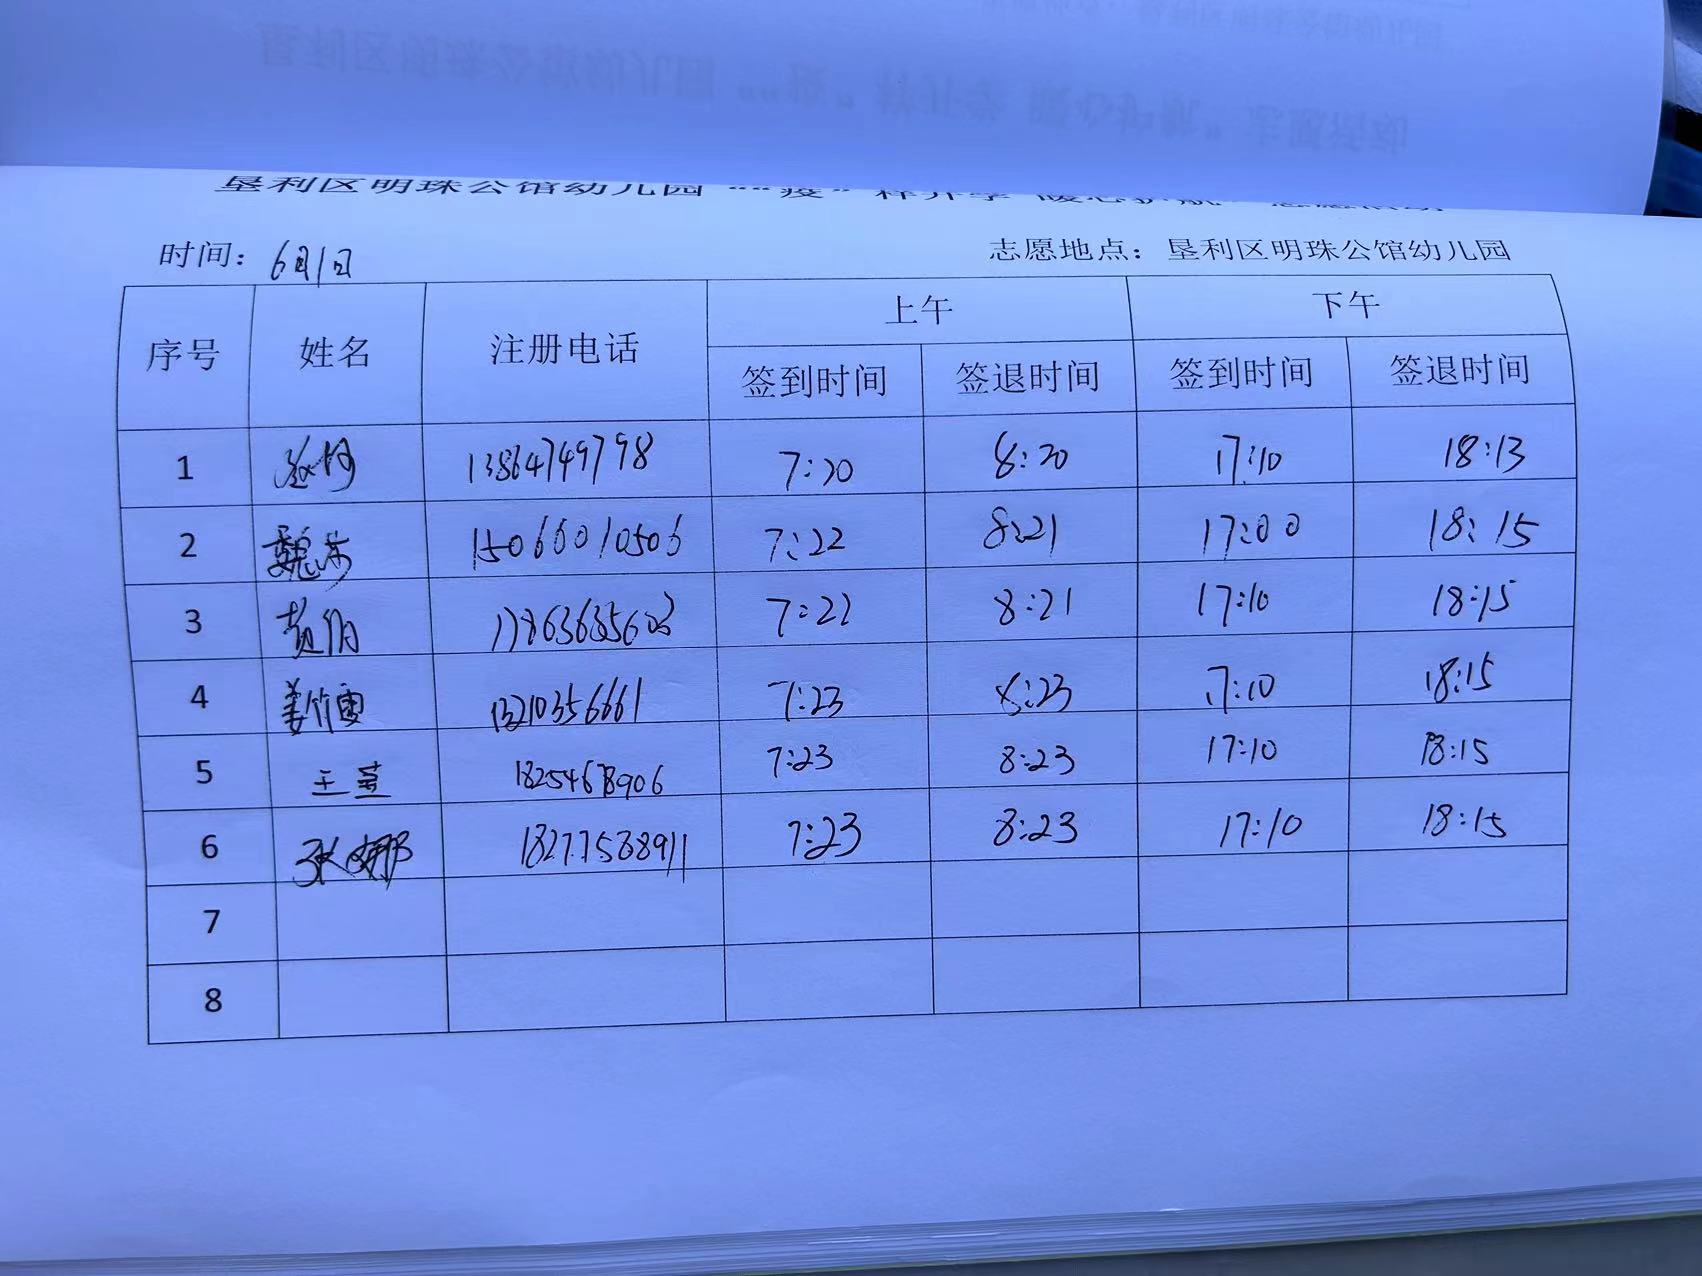 垦利区明珠公馆幼儿园 ““疫”样开学 暖心护航”志愿活动
时间：6月1日 志愿地点：垦利区明珠公馆幼儿园
序号 姓名 注册电话 上午 下午
签到时间 签退时间 签到时间 签退时间
1 13864749798 7:20 8:20 17:10 18:13
2 魏 15066010506 7:22 8:21 17:00 18:15
3 7:22 8:21 17:10 18:15
4 姜竹雪 13210356661 7:23 8:23 17:10 18:15
5 王 18254678906 7:23 8:23 17:10 18:15
6 张娜 18277588911 7:23 8:23 17:10 18:15
7
8